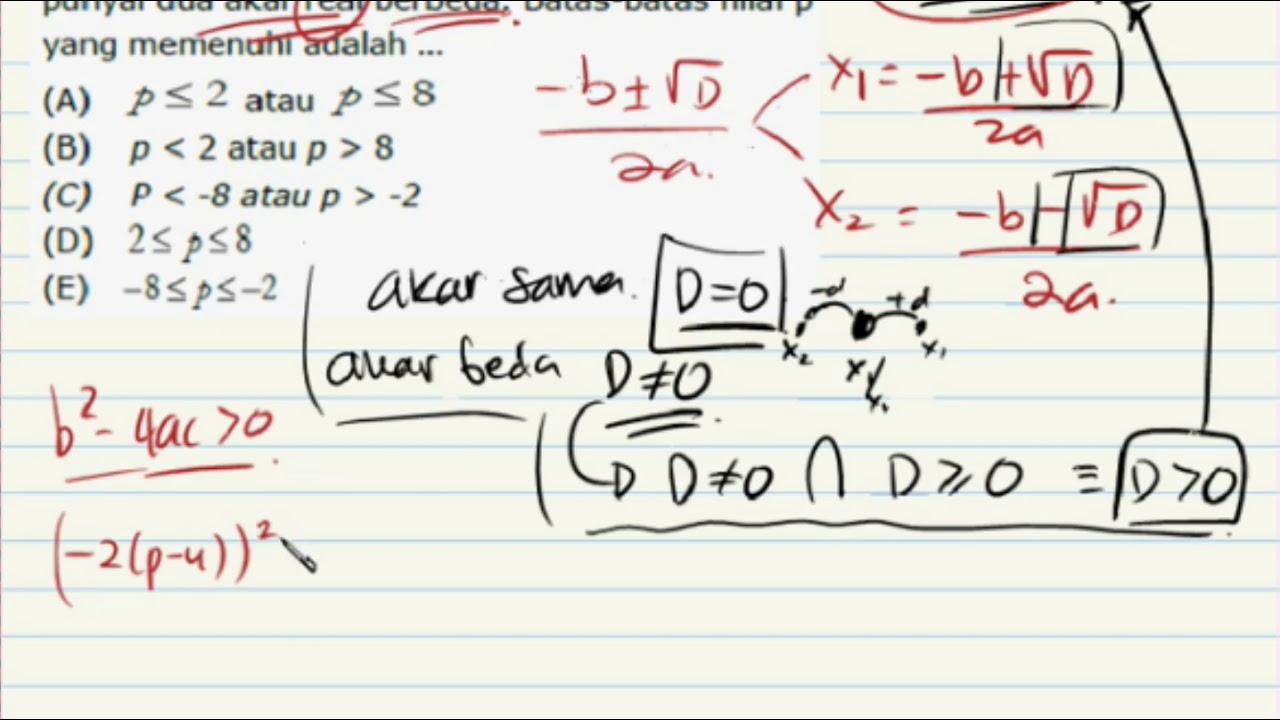 punyai dua akar real berbeda. Batas-batas nilai p
yang memenuhi adalah ...
(A) p ≤ 2 atau p ≤ 8
(B) p < 2 atau p > 8
(C) P < -8 atau p > -2
(D) 2 ≤ p ≤ 8
(E) -8 ≤ p ≤ -2
-b ± √D
2a.
x₁ = -b + √D
2a
x₂ = -b - √D
2a.
akar sama. D = 0
akar beda D ≠ 0
-d +d
x₂ x₁
D ≠ 0 ∩ D ≥ 0 ≡ D > 0
b² - 4ac > 0
(-2(p-4))²